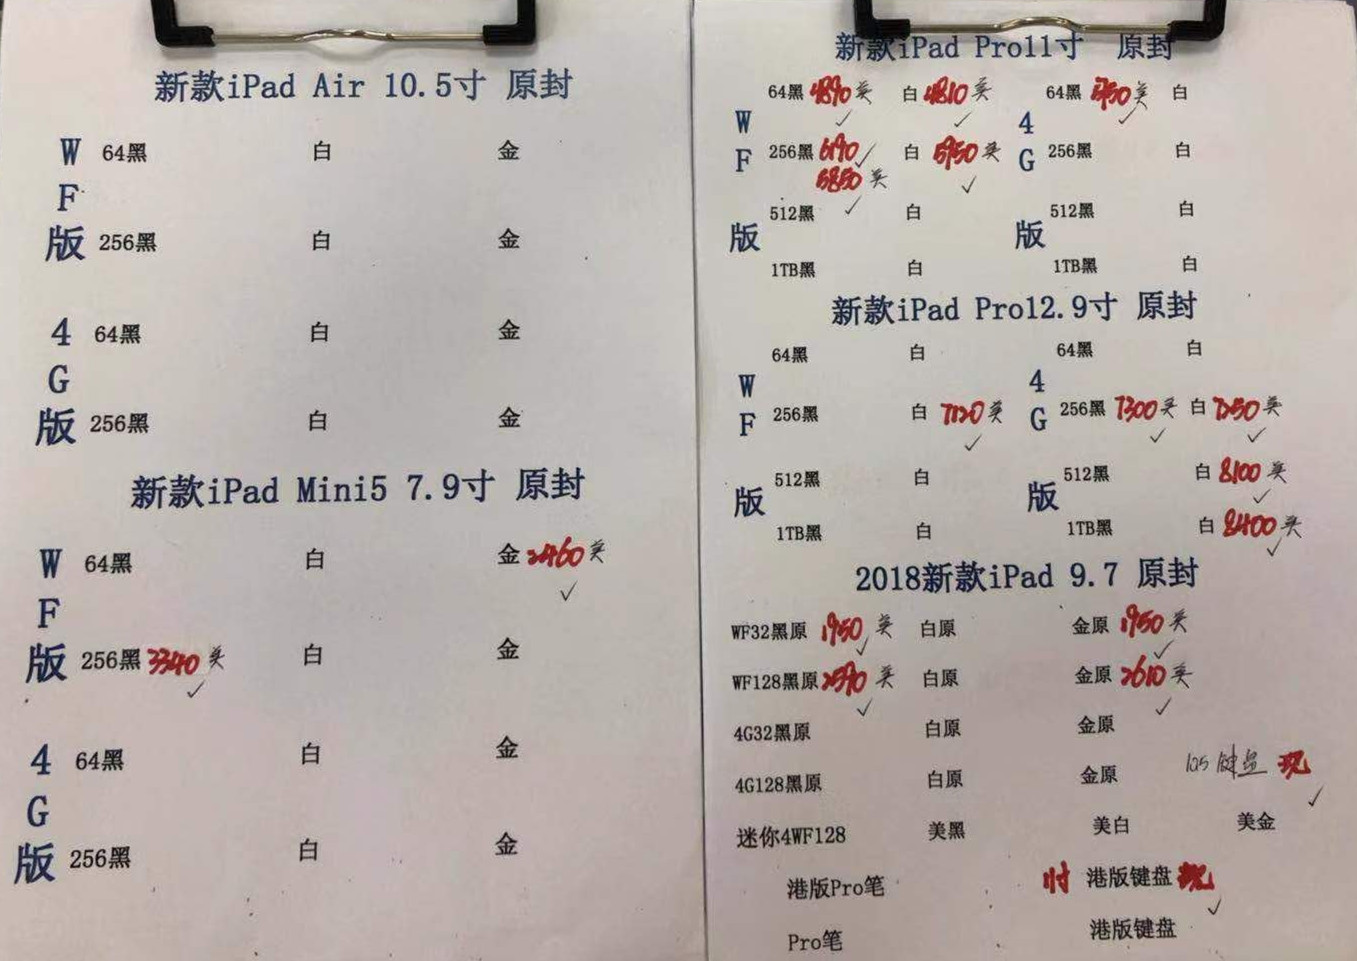 新款iPad Air 10.5寸 原封
WF版
64黑 白 金
256黑 白 金
4G版
64黑 白 金
256黑 白 金
新款iPad Mini5 7.9寸 原封
WF版
64黑 白 金2460美
256黑3340美 白 金
4G版
64黑 白 金
256黑 白 金
新款iPad Pro11寸 原封
WF版
64黑4890美 白4810美
256黑6190 白5950美
5850美
512黑 白
1TB黑 白
4G版
64黑美 白
256黑 白
512黑 白
1TB黑 白
新款iPad Pro12.9寸 原封
WF版
64黑 白
256黑 白7120美
512黑 白
1TB黑 白
4G版
64黑 白
256黑7300美 白7250美
512黑 白8100美
1TB黑 白8400美
2018新款iPad 9.7 原封
WF32黑原1950美 白原 金原1950美
WF128黑原2590美 白原 金原2610美
4G32黑原 白原 金原
4G128黑原 白原 金原
键盘 现
迷你4WF128 美黑 美白 美金
港版Pro笔 11寸 港版键盘现
Pro笔 港版键盘